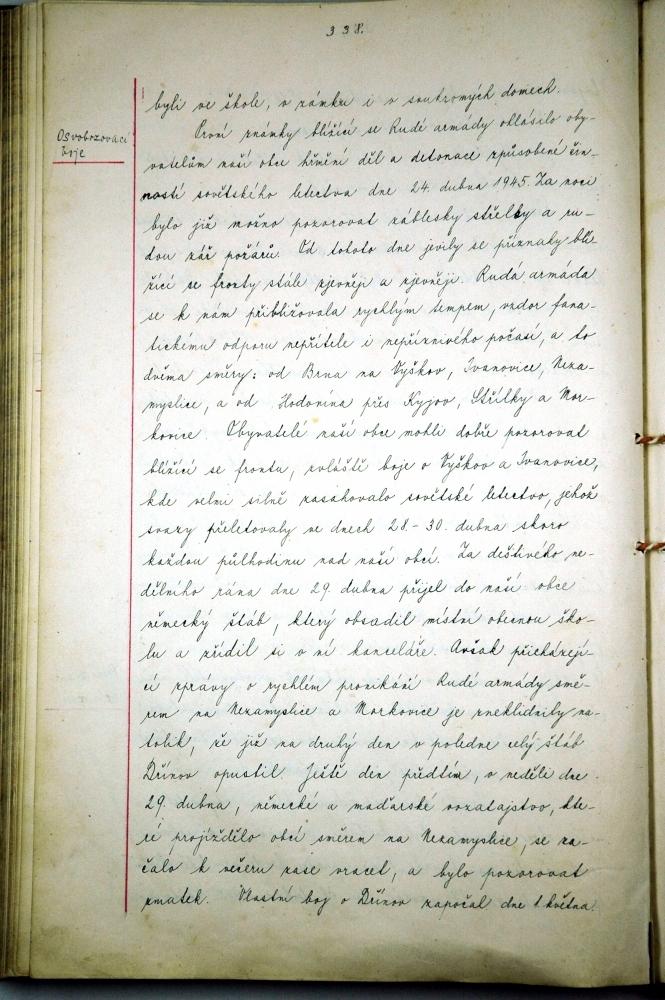 338.
byli ve škole, v zámku i v soukromých domech.
Osvobozovací
boje
První známky blížící se Rudé armády ohlásilo oby-
vatelům naší obce hřmění děl a detonace způsobené čin-
ností sovětského letectva dne 24. dubna 1945. Za noci
bylo již možno pozorovat záblesky střelby a ru-
dou zář požárů. Od tohoto dne jevily se příznaky blí-
žící se fronty stále zjevněji a zjevněji. Rudá armáda
se k nám přibližovala rychlým tempem, vzdor fana-
tickému odporu nepřítele i nepříznivého počasí, a to
dvěma směry: od Brna na Vyškov, Ivanovice, Neza-
myslice, a od Hodonína přes Kyjov, Střílky a Mor-
kovice. Obyvatelé naší obce mohli dobře pozorovat
blížící se frontu, zvláště boje o Vyškov a Ivanovice,
kde velmi silně zasahovalo sovětské letectvo, jehož
svazy přeletovaly ve dnech 28-30. dubna skoro
každou půlhodinu nad naší obcí. Za deštivého ne-
dělního rána dne 29. dubna přijel do naší obce
německý štáb, který obsadil místní obecnou ško-
lu a zřídil si v ní kanceláře. Avšak přicházejí-
cí zprávy o rychlém pronikání Rudé armády smě-
rem na Nezamyslice a Morkovice je zneklidnily na-
tolik, že již na druhý den v poledne celý štáb
Dřínov opustil. Ještě den předtím, v neděli dne
29. dubna, německé a maďarské vozatajstvo, kte-
ré projíždělo obcí směrem na Nezamyslice, se za-
čalo k večeru zase vracet, a bylo pozorovat
zmatek. Vlastní boj o Dřínov započal dne 1. května.